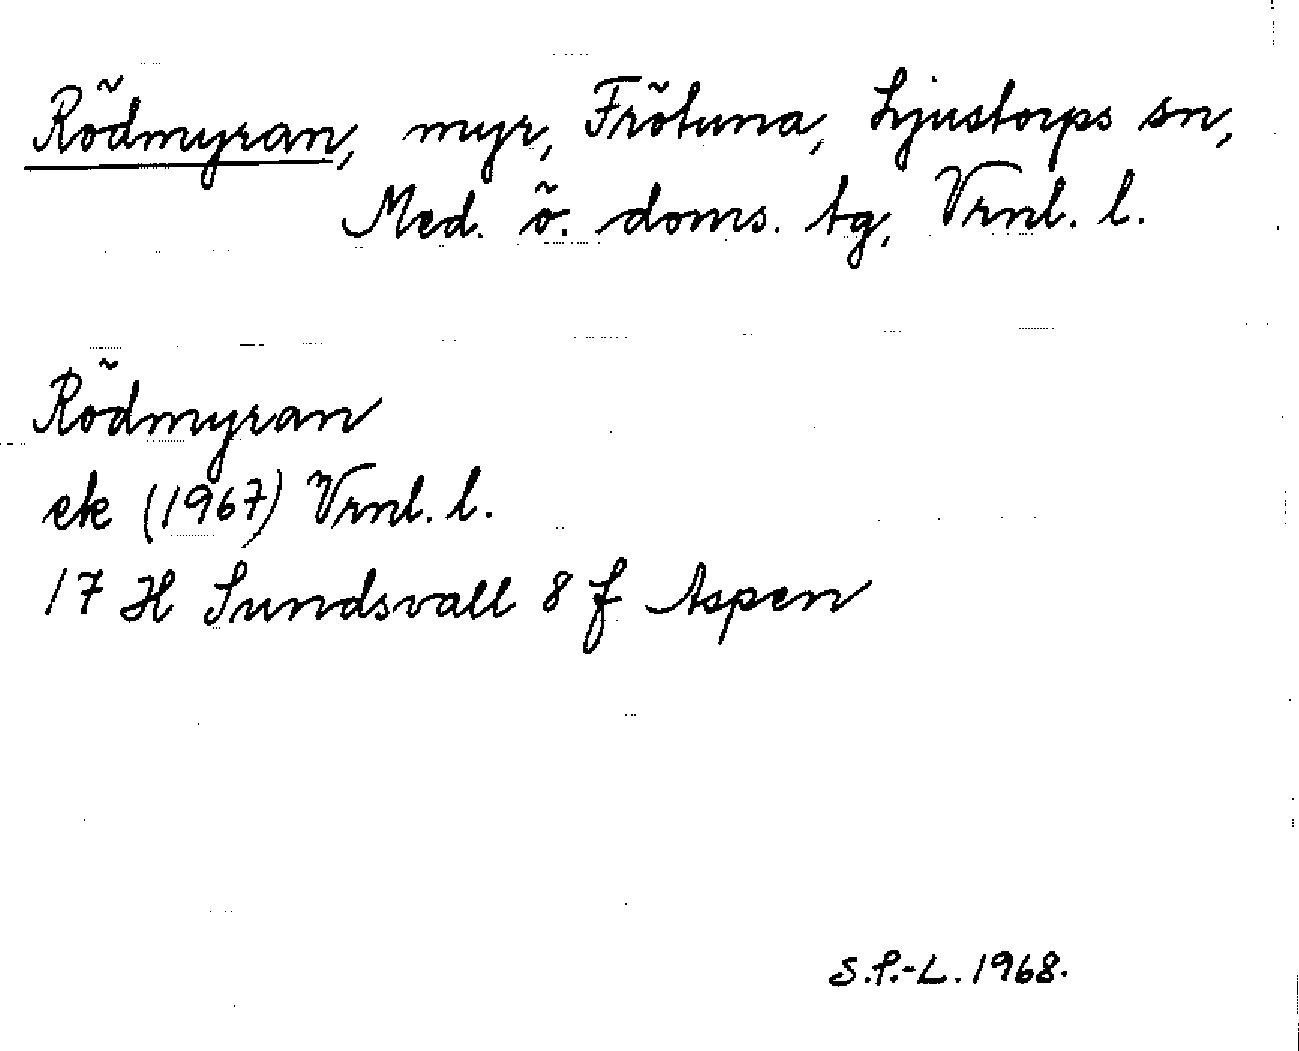 Rödmyran, myr, Frötuna, Ljustorps sn,
Med. ö. doms. tg, Vrnl. l.
Rödmyran
ek (1967) Vrnl. l.
17 H Sundsvall 8 f Aspen
S.P.-L. 1968.